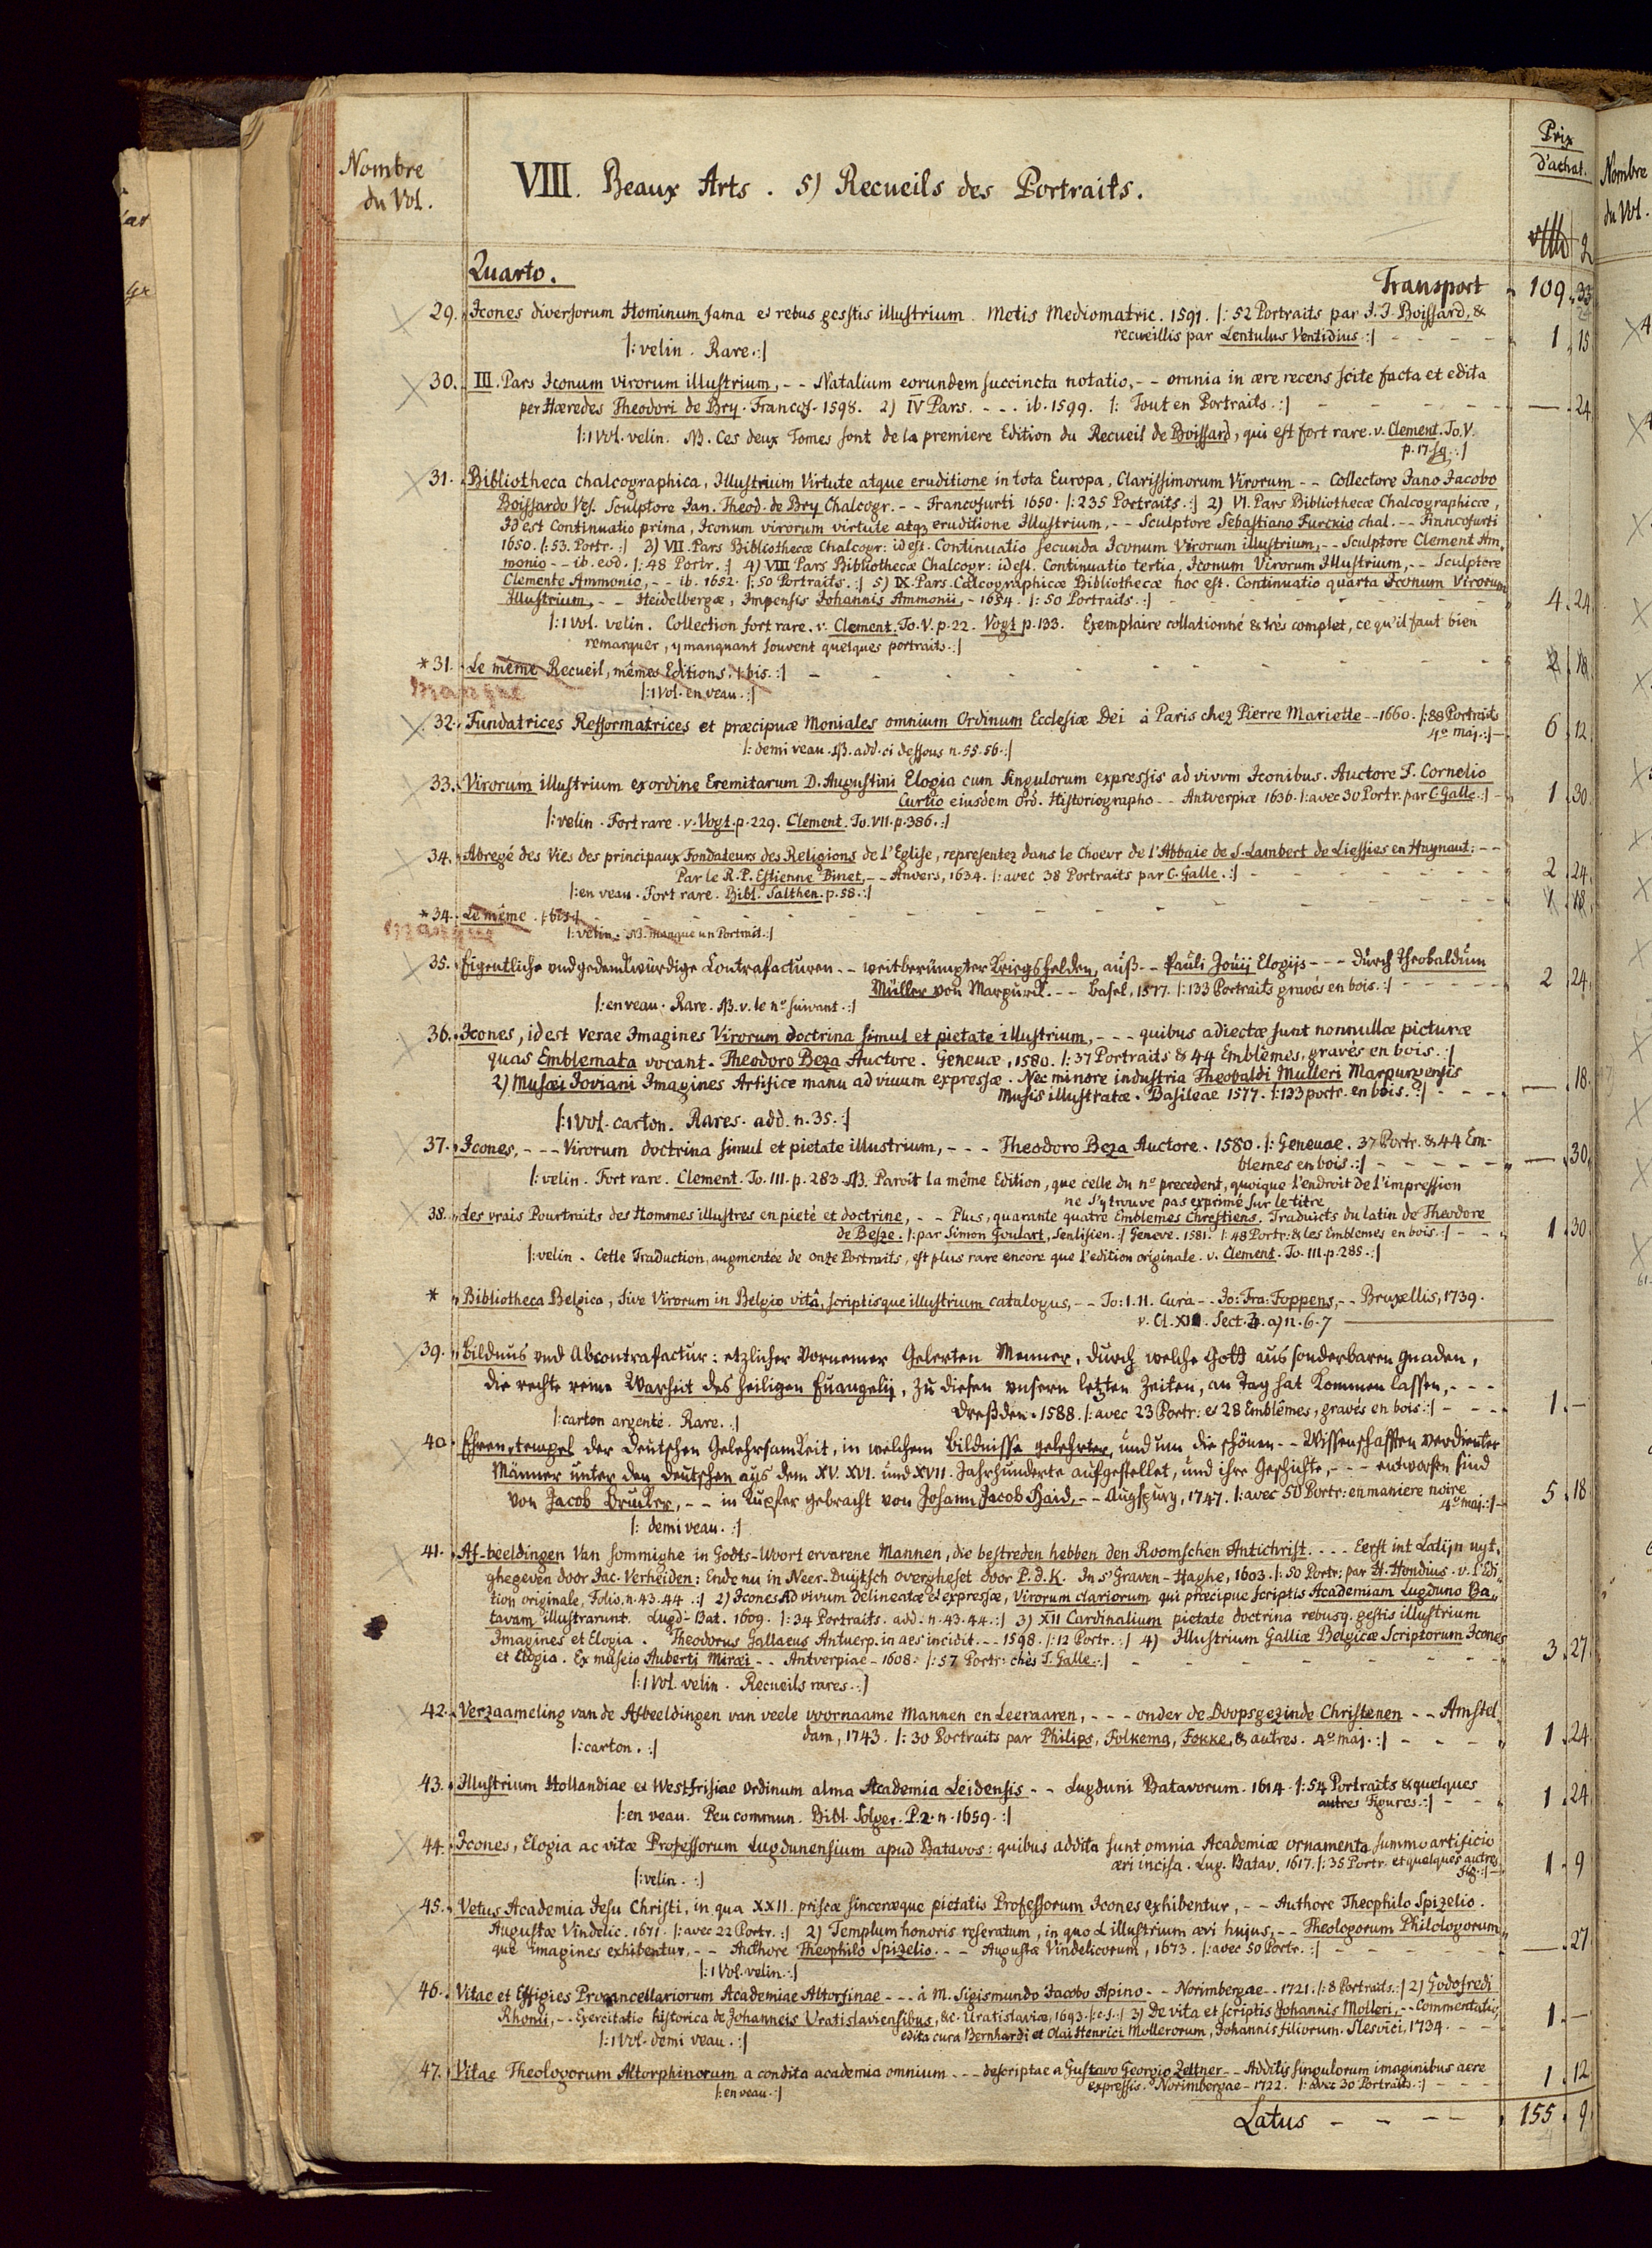 Nombre du Vol.
VIII. Beaux Arts. 5) Recueils des Portraits.
Prix d'achat.
Nombre du Vol.
Quarto. Transport 109. 33
29. Icones diversorum Hominum fama et rebus gesstis illustrium. Metis Mediomatric. 1591. |: 52 Portraits par J. J. Boissard, &
recueillis par Lentulus Ventidius :| - - - - 1. 15
|: velin. Rare. :|
30. III. Pars Iconum virorum illustrium, - - Natalium eorundem succincta notatio, - - omnia in ære recens scite facta et edita
per Hæredes Theodori de Bry. Francof. 1598. 2) IV Pars. - - - ib. 1599. |: Tout en Portraits. :| - - - - — . 24
|: 1 Vol. velin. NB. Ces deux Tomes sont de la premiere Edition du Recueil de Boissard, qui est fort rare. v. Clement. To. V.
p. 17. sq. :|
31. Bibliotheca chalcographica, Illustrium Virtute atque eruditione in tota Europa, Clarissimorum Virorum - - Collectore Iano Jacobo
Boissardo Ves. Sculptore Jan. Theod. de Bry Chalcogr. - - Francofurti 1650. |: 235 Portraits. :| 2) VI. Pars Bibliothecæ Chalcographicæ,
Id est Continuatio prima, Iconum virorum virtute atq; eruditione Illustrium, - - Sculptore Sebastiano Furckio chal. - - Francofurti
1650. |: 53. Portr. :| 3) VII. Pars Bibliothecæ Chalcogr: id est. Continuatio secunda Iconum Virorum illustrium, - - Sculptore Clement Am,
monio - - ib. eod. |: 48 Portr. :| 4) VIII Pars Bibliothecæ Chalcogr: id est. Continuatio tertia, Iconum Virorum Illustrium, - - Sculptore
Clemente Ammonio, - - ib. 1652. |: 50 Portraits. :| 5) IX. Pars. Calcographicæ Bibliothecæ hoc est. Continuatio quarta Iconum Virorum
Illustrium, - - Heidelbergæ, Impensis Johannis Ammonii, - 1654. |: 50 Portraits. :| - - - 4. 24
|: 1 Vol. velin. Collection fort rare. v. Clement. To. V. p. 22. Vogt p. 133. Exemplaire collationné & trés complet, ce qu'il faut bien
remarquer, y manquant souvent quelques portraits. :|
*31. Le même Recueil, mêmes Editions. |: bis. :| - - - - 2. 18
manque |: 1 Vol. en veau. :|
32. Fundatrices Refformatrices et præcipuæ Moniales omnium Ordinum Ecclesiæ Dei à Paris chez Pierre Mariette - - 1660. |: 88 Portraits
4º maj. :| - 6. 12
|: demi veau. NB. add. ci dessous n. 55. 56. :|
33. Virorum illustrium ex ordine Eremitarum D. Augustini Elogia cum singulorum expressis ad vivum Iconibus. Auctore F. Cornelio
Curtio eiusdem Ord. Historiographo - - Antverpiæ 1636. |: avec 30 Portr. par C. Galle :| - 1. 30
|: velin. Fort rare. v. Vogt. p. 229. Clement. To. VII. p. 386. :|
34. Abregé des Vies des principaux Fondateurs des Religions de l'Eglise, representez dans le Choeur de l'Abbaie de S. Lambert de Liessies en Haynaut: - -
Par le R. P. Estienne Binet, - - Anvers, 1634. |: avec 38 Portraits par C. Galle. :| - - - - 2. 24
|: en veau. Fort rare. Bibl. Salthen. p. 58. :|
*34. Le même. |: bis :| - - - - 1. 18
manque |: velin. NB. manque un Portrait. :|
35. Eigentliche vnd gedenckwürdige Contrafacturen - - weitberümpter Kriegshelden, auß - - Pauli Jouij Elogijs - - - durch Theobaldum
Müller von Marpurck. - - Basel, 1577. |: 133 Portraits gravés en bois. :| - - - - 2. 24
|: en veau. Rare. NB. v. le nº suivant. :|
36. Icones, id est verae Imagines Virorum doctrina simul et pietate illustrium, - - - quibus adiectæ sunt nonnullæ picturæ
quas Emblemata vocant. Theodoro Beza Auctore. Geneuæ, 1580. |: 37 Portraits & 44 Emblêmes, gravés en bois. :|
2) Musæi Ioviani Imagines Artifice manu ad viuum expressæ. Nec minore industria Theobaldi Mulleri Marpurgensis
Musis illustratæ. Basileae 1577. |: 133 portr. en bois. :| - - - — . 18
|: 1 Vol. carton. Rares. add. n. 35. :|
37. Icones, - - - Virorum doctrina simul et pietate illustrium, - - - Theodoro Beza Auctore. 1580. |: Geneuae. 37 Portr. & 44 Em-
blemes en bois. :| - - - - — . 30
|: velin. Fort rare. Clement. To. III. p. 283. NB. Paroit la même Edition, que celle du nº precedent, quoique l'endroit de l'impression
ne s'y trouve pas exprimé sur le titre
38. Les vrais Pourtraits des Hommes illustres en pieté et doctrine, - - Plus, quarante quatre Emblemes Chrestiens. Traduicts du latin de Theodore
de Besze. |: par Simon Goulart, Senlisien. :| Geneve. 1581. |: 48 Portr: & les Emblemes en bois. :| - - - 1. 30
|: velin. Cette Traduction, augmentée de onze Portraits, est plus rare encore que l'edition originale. v. Clement. To. III. p. 285. :|
* Bibliotheca Belgica, sive Virorum in Belgio vitâ, scriptisque illustrium catalogus, - - To: I. II. Cura - - Jo: Fra: Foppens, - - Bruxellis, 1739.
v. Cl. XII. Sect. 3. a) n. 6. 7
39. Bildnus vnd Abcontrafactur: etzlicher Vornemer Gelerten Menner, durch welche Gott aus sonderbaren gnaden,
die rechte reine Warheit des heiligen Euangelij, zu diesen vnsern letzten Zeiten, an Tag hat kommen lassen, - - -
Dreßden. 1588. |: avec 23 Portr: et 28 Emblêmes, gravés en bois. :| - - - 1. —
|: carton argenté. Rare. :|
40. Ehren-tempel der Deutschen Gelehrsamkeit, in welchem Bildnisse gelehrter, und um die schönen - - Wissenschafften verdienter
Männer unter den Deutschen aus dem XV. XVI. und XVII. Jahrhunderte aufgestellet, und ihre Geschichte, - - - entworfen sind
von Jacob Brucker, - - in Kupfer gebracht von Johann Jacob Haid, - - Augspurg, 1747. |: avec 50 Portr: en maniere noire
4º maj. :| - 5. 18
|: demi veau. :|
41. Af-beeldingen Van sommighe in Godts-Woort ervarene Mannen, die bestreden hebben den Roomschen Antichrist. - - - Eerst int Latijn uyt,
ghegeven door Jac. Verheiden: Ende nu in Neer-Duijtsch overgheset door P. d. K. In s' Graven-Haghe, 1603. |: 50 Portr: par H. Hondius. v. l'Edi-
tion originale, Folio. n. 43. 44. :| 2) Icones Ad vivum delineatæ et expressæ, Virorum clariorum qui præcipue scriptis Academiam Lugduno Ba,,
tavam illustrarunt. Lugd-Bat. 1609. |: 34 Portraits. add. n. 43. 44. :| 3) XII Cardinalium pietate doctrina rebusq. gestis illustrium
Imagines et Elogia. Theodorus Gallaeus Antuerp. in aes incidit. - - 1598. |: 12 Portr. :| 4) Illustrium Galliæ Belgicæ Scriptorum Icones
et Elogia. Ex museio Auberti Miræi - - Antverpiae - 1608. |: 57 Portr: chès T. Galle. :| - - - 3. 27
|: 1 Vol. velin. Recueils rares. :|
42. Verzaameling van de Afbeeldingen van veele voornaame Mannen en Leeraaren, - - - onder de Doopsgezinde Christenen - - Amstel,
dam, 1743. |: 30 Portraits par Philips, Folkema, Fokke, & autres. 4º maj. :| - - - 1. 24
|: carton. :|
43. Illustrium Hollandiae et Westfrisiae Ordinum alma Academia Leidensis - - Lugduni Batavorum. 1614. |: 54 Portraits & quelques
autres Figures. :| - - 1. 24
|: en veau. Peu commun. Bibl. Solger. P. 2. n. 1659. :|
44. Icones, Elogia ac vitæ Professorum Lugdunensium apud Batavos: quibus addita sunt omnia Academiæ ornamenta summo artificio
æri incisa. Lug. Batav. 1617. |: 35 Portr. et quelques autres
Fig. :| - 1. 9
|: velin. :|
45. Vetus Academia Jesu Christi, in qua XXII. priscæ sinceræque pietatis Professorum Icones exhibentur, - - Authore Theophilo Spizelio.
Augustæ Vindelic. 1671. |: avec 22 Portr. :| 2) Templum honoris reseratum, in quo L illustrium ævi hujus, - - Theologorum Philologorum,,
que Imagines exhibentur, - - Authore Theophilo Spizelio. - - Augustæ Vindelicorum, 1673. |: avec 50 Portr. :| - - - — . 27
|: 1 Vol. velin. :|
46. Vitae et Effigies Procancellariorum Academiae Altorfinae - - - à M. Sigismundo Jacobo Apino - - Norimbergae - - 1721. |: 8 Portraits. :| 2) Godofredi
Rhonii, - - Exercitatio historica de Johanneis Vratislaviensibus, &c. Uratislaviæ, 1693. |: c. f. :| 3) De vita et scriptis Johannis Molleri, - - Commentatio,
edita cura Bernhardi et Olai Henrici Mollerorum, Johannis filiorum. Slesvici, 1734. - - - 1. —
|: 1 Vol. demi veau. :|
47. Vitae Theologorum Altorphinorum a condita academia omnium - - - descriptae a Gustavo Georgio Zeltner - - Additis singulorum imaginibus aere
expressis. Norimbergae - 1722. |: avec 30 Portraits. :| - - - 1. 12
|: en veau. :|
Latus - - - - 155. 9